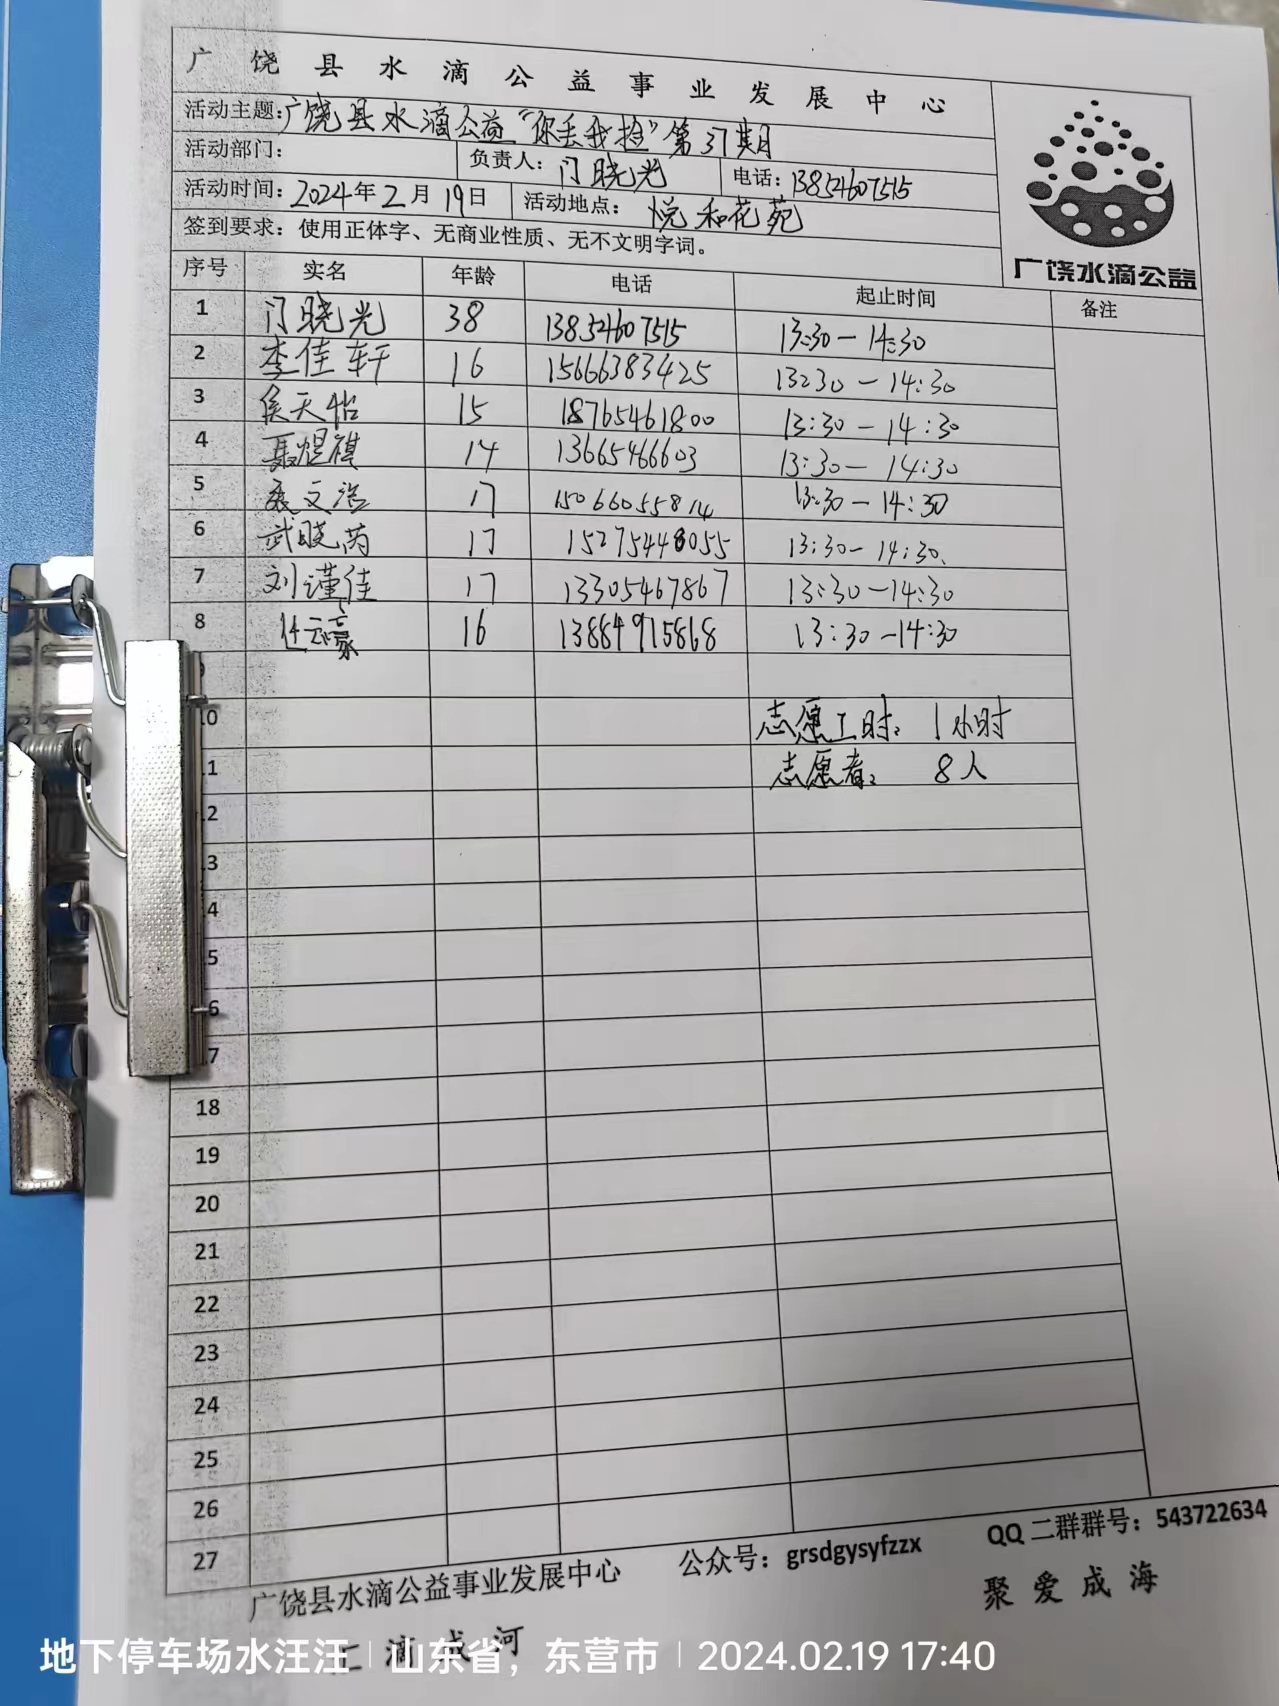 广饶县水滴公益事业发展中心
活动主题:广饶县水滴公益"你丢我捡"第37期
活动部门: 负责人: 门晓光 电话: 13852607515
活动时间: 2024年2月19日 活动地点: 悦和花苑
签到要求：使用正体字、无商业性质、无不文明字词。
广饶水滴公益
序号 实名 年龄 电话 起止时间 备注
1 门晓光 38 13852607515 13:30-14:30
2 李佳轩 16 15666383425 13:30-14:30
3 侯天怡 15 18765461800 13:30-14:30
4 聂煜祺 14 13665466603 13:30-14:30
5 文浩 17 15066055814 13:30-14:30
6 武晓芮 17 15275448055 13:30-14:30
7 刘谨佳 17 13305467867 13:30-14:30
8 任云豪 16 13884915868 13:30-14:30
9
10 志愿工时: 1小时
11 志愿者: 8人
12
13
14
15
16
17
18
19
20
21
22
23
24
25
26
27
广饶县水滴公益事业发展中心 公众号：grsdgysyfzzx QQ二群群号：543722634
汇滴成河 聚爱成海
地下停车场水汪汪 | 山东省，东营市 | 2024.02.19 17:40